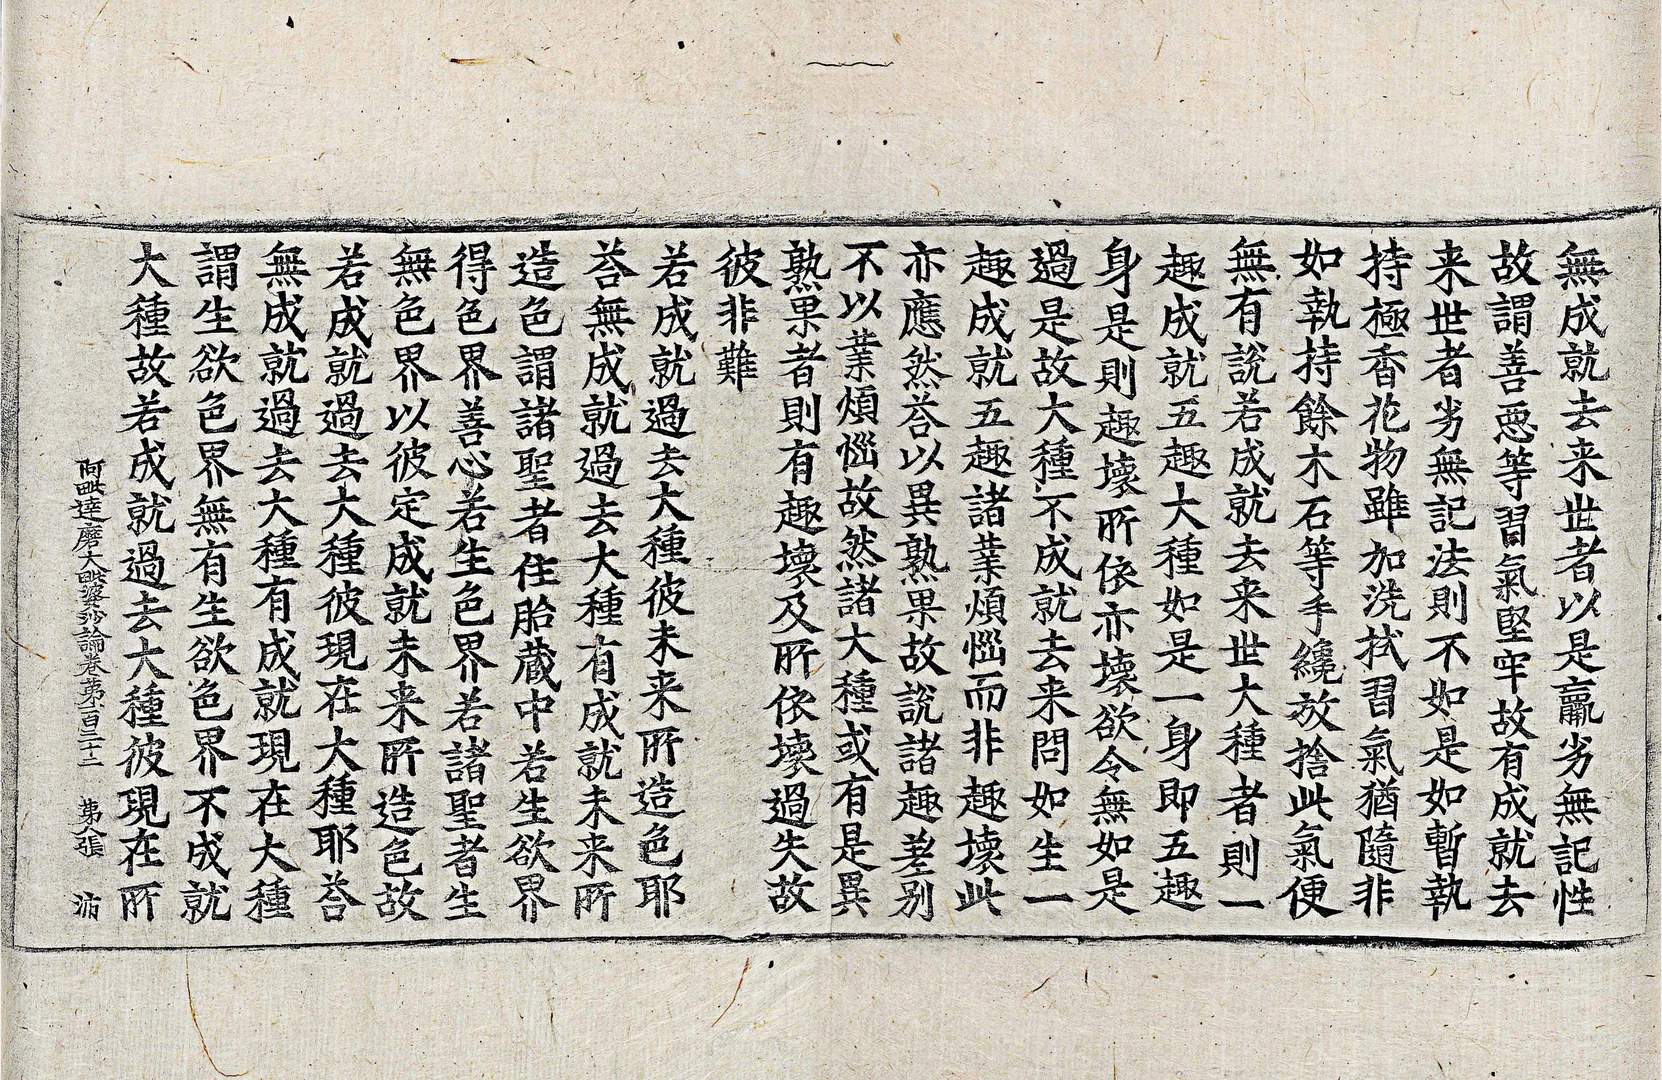 無成就去来世者以是羸劣無記性
故謂善惡等習氣堅牢故有成就去
来世者劣無記法則不如是如暫執
持極香花物雖加洗拭習氣猶隨非
如執持餘木石等手纔放捨此氣便
無有說若成就去来世大種者則一
趣成就五趣大種如是一身即五趣
身是則趣壞所依亦壞欲令無如是
過是故大種不成就去来問如生一
趣成就五趣諸業煩惱而非趣壞此
亦應然荅以異熟果故說諸趣差别
不以業煩惱故然諸大種或有是異
熟果者則有趣壞及所依壞過失故
彼非難
若成就過去大種彼未来所造色耶
荅無成就過去大種有成就未来所
造色謂諸聖者住胎藏中若生欲界
得色界善心若生色界若諸聖者生
無色界以彼定成就未来所造色故
若成就過去大種彼現在大種耶荅
無成就過去大種有成就現在大種
謂生欲色界無有生欲色界不成就
大種故若成就過去大種彼現在所
阿毗達磨大毗婆沙論卷第一百三十二 第八張 沛